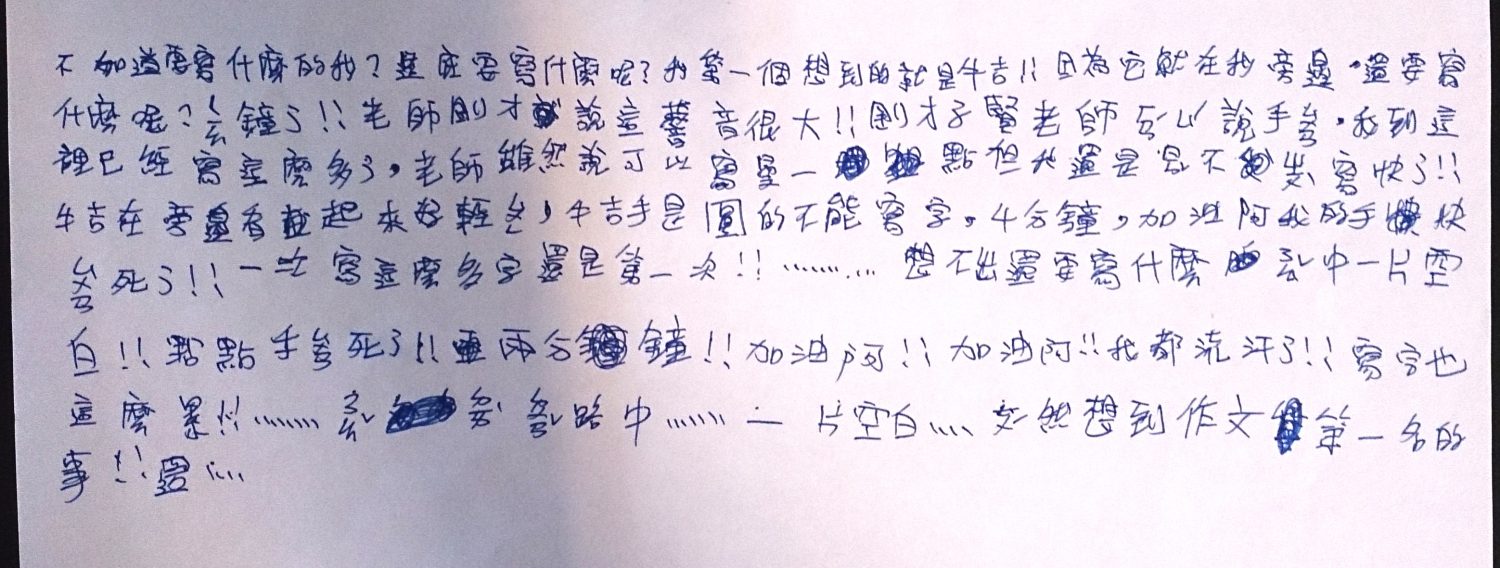 不知道要寫什麼的我?是在要寫什麼呢?我第一個想到的就是牛吉!!因為它就在我旁邊,還要寫
什麼呢?ㄙ鐘了!!老師剛才說這聲音很大!!剛才子賢老師說手ㄙㄨㄢ,我到這
裡已經寫這麼多了,老師雖然說可以寫一點但我還是寫不快了!!
牛吉在旁邊看起來好輕ㄙ,牛吉手是圓的不能寫字,4分鐘,加油阿我的手快
ㄙㄨㄢ死了!!一次寫這麼多字還是第一次!!………… 想不出還要寫什麼 中一片空
白!!點點手ㄙㄨㄢ死了!!兩分鐘!!加油阿!!加油阿!!我都流汗了!!寫字也
這麼累!!…… 路中……一片空白…. 突然想到作文第一名的
事!!還….